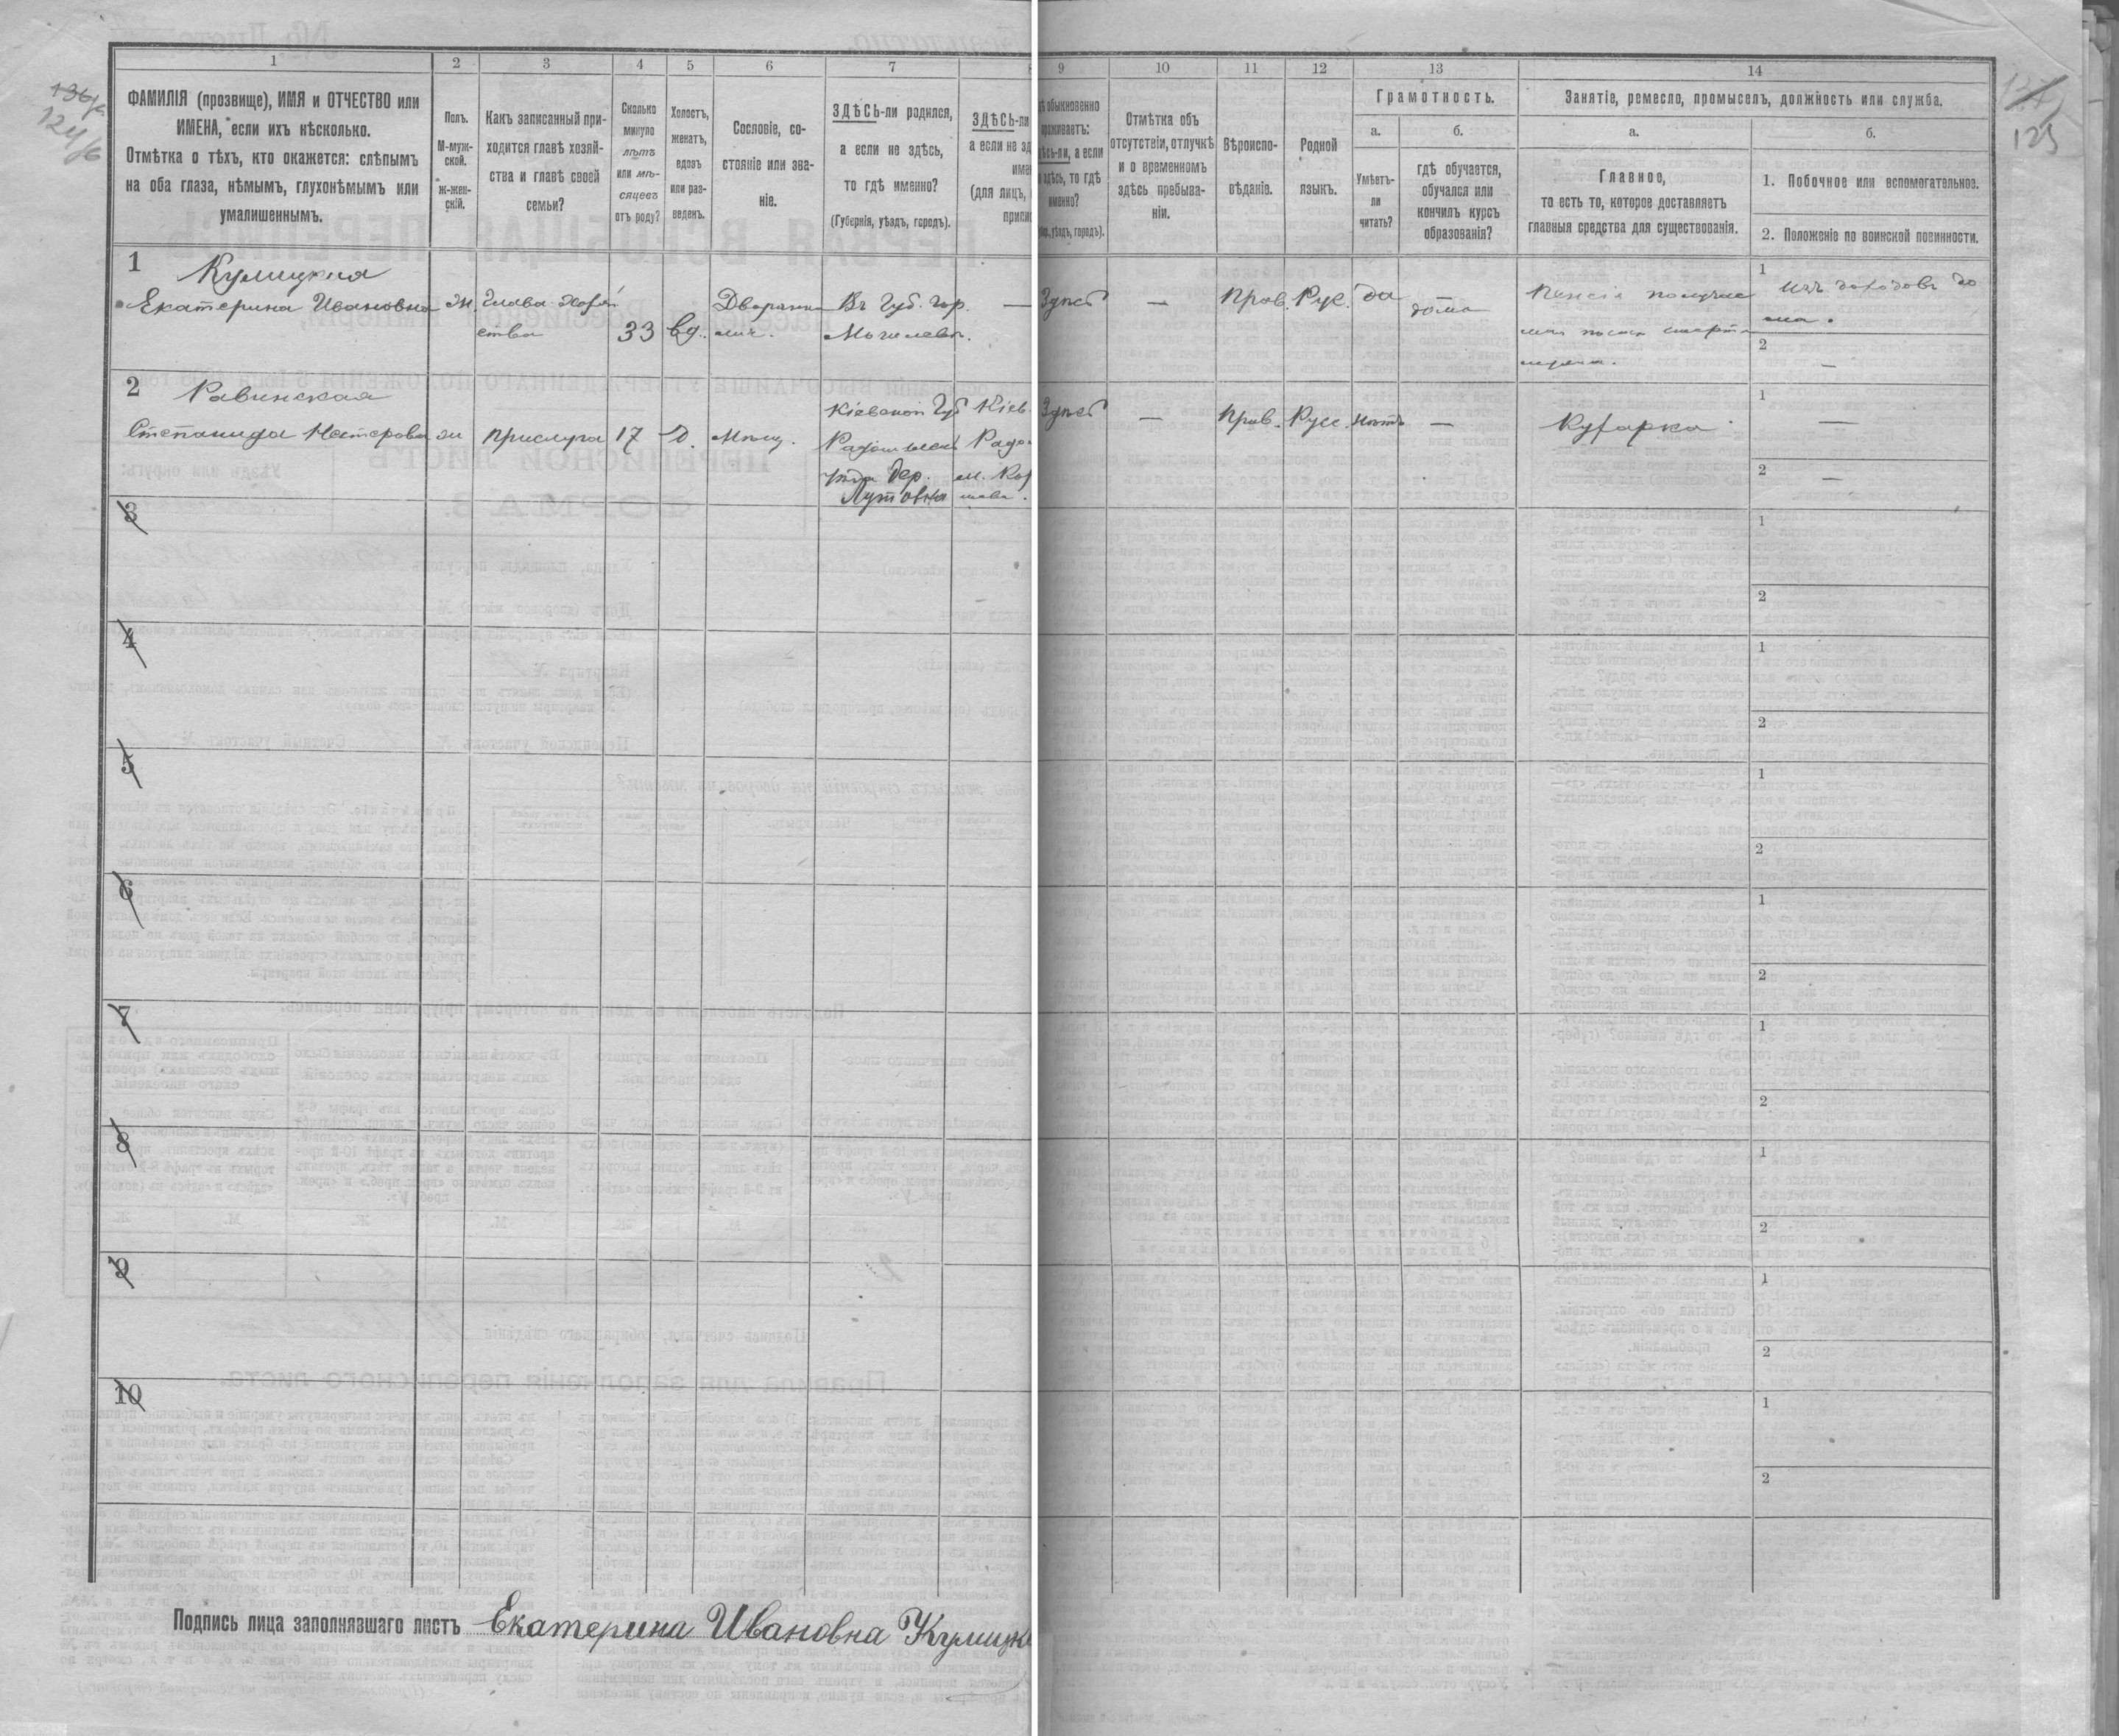 1
2
3
4
5
6
7
9
10
11
12
13
14
ФАМИЛІЯ (прозвище), ИМЯ и ОТЧЕСТВО или
ИМЕНА, если ихъ нѣсколько.
Отмѣтка о тѣхъ, кто окажется: слѣпымъ
на оба глаза, нѣмымъ, глухонѣмымъ или
умалишеннымъ.
Полъ.
М-муж-
ской.
ж-жен-
скій.
Какъ записанный при-
ходится главѣ хозяй-
ства и главѣ своей
семьи?
Сколько
минуло
лѣтъ
или мѣ-
сяцевъ
отъ роду?
Холостъ,
женатъ,
вдовъ
или раз-
веденъ.
Сословіе, со-
стояніе или зва-
ніе.
ЗДѢСЬ-ли родился,
а если не здѣсь,
то гдѣ именно?
(Губернія, уѣздъ, городъ).
ЗДѢСЬ-ли
а если не зд
име
(для лицъ,
припис
обыкновенно
проживаетъ:
здѣсь-ли, а если
не здѣсь, то гдѣ
именно?
уѣздъ, городъ).
Отмѣтка объ
отсутствіи, отлучкѣ
и о временномъ
здѣсь пребыва-
ніи.
Вѣроиспо-
вѣданіе.
Родной
языкъ.
Грамотность.
а.
б.
Умѣетъ-
ли
читать?
гдѣ обучается,
обучался или
кончилъ курсъ
образованія?
Занятіе, ремесло, промыселъ, должность или служба.
а.
б.
Главное,
то есть то, которое доставляетъ
главныя средства для существованія.
1. Побочное или вспомогательное.
2. Положеніе по воинской повинности.
124/б
125
1
Кулицкая
Екатерина Ивановна
ж.
Глава хозяй
ства
33
вд.
Дворянка
Въ Губ. гор.
Могилевѣ.
—
Здѣсь
—
Прав.
Рус.
да
дома
Пенсія получае
мая послѣ смерти
мужа.
1
Изъ доходовъ до
ма.
2
—
2
Равинская
Степанида Нестерова
ж
прислуга
17
д.
Мѣщ.
Кіевской Губ
Радомысл
уѣзда дер.
Лутовка
Кіев.
Радо
м. Кор
Здѣсь
—
Прав.
Русс.
нѣтъ
—
Кухарка
1
—
2
—
3
1
2
4
1
2
5
1
2
6
1
2
7
1
2
8
1
2
9
1
2
10
1
2
Подпись лица заполнявшаго листъ Екатерина Ивановна Кулицк